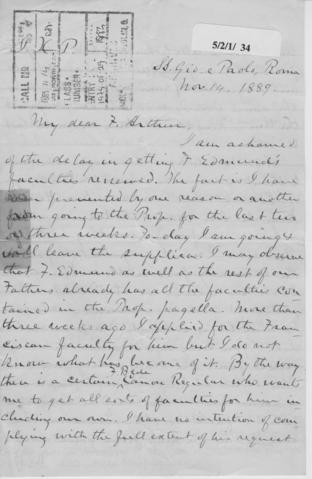 5/2/1/ 34
CALL NO
CLASS
NUMBER
SS. Gio. e Paolo, Roma
Nov. 14. 1889.
My dear F. Arthur,
I am ashamed
of the delay in getting F. Edmund's
faculties renewed. The fact is I have
been prevented by one reason or another
from going to the Prop. for the last two
or three weeks. To-day I am going &
will leave the supplica. I may observe
that F. Edmund as well as the rest of our
Fathers already has all the faculties con-
tained in the Prop. pagella. More than
three weeks ago I applied for the Fran-
ciscan faculty for him but I do not
know what has become of it. By the way
there is a certain F. Bede Canon Regular who wants
me to get all sorts of faculties for him in-
cluding our own. I have no intention of com-
plying with the full extent of his request